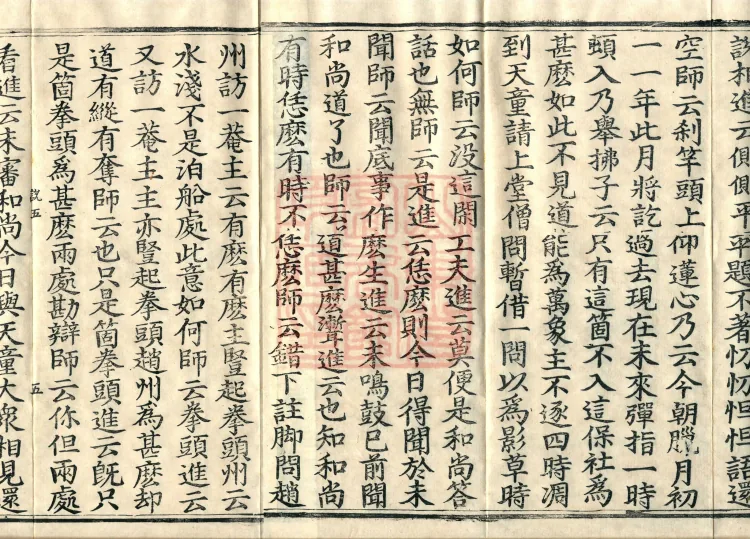 進云側側平平題不著忉忉怛怛語還
空師云刹竿頭上仰蓮心乃云今朝臘月初
一一年此月將訖過去現在未來彈指一時
頓入乃舉拂子云只有這箇不入這保社為
甚麼如此不見道能為萬象主不逐四時凋
到天童請上堂僧問暫借一問以為影草時
如何師云沒這閑工夫進云莫便是和尚荅
話也無師云是進云恁麼則今日得聞於未
聞師云聞底事作麼生進云未鳴鼓已前聞
和尚道了也師云道甚麼聻進云也知和尚
有時恁麼有時不恁麼師云錯下註脚問趙
州訪一菴主云有麼有麼主豎起拳頭州云
水淺不是泊船處此意如何師云拳頭進云
又訪一菴主主亦豎起拳頭趙州為甚麼却
道有縱有奪師云也只是箇拳頭進云旣只
是箇拳頭為甚麼兩處勘辯師云你但兩處
說五 五
看進云未審和尚今日與天童大衆相見還